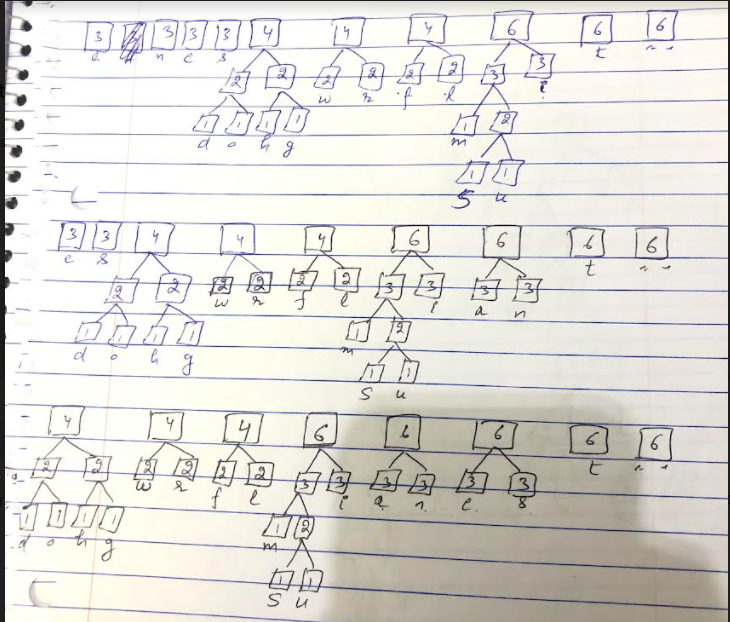 3 3 3 3 4 4 4 6 6 6
2 2 2 2 2 2 3 3
a n e s w r f l i t " "
1 1 1 1 1 2
d o h g m
1 1
S u
3 3 4 4 4 6 6 6 6
e s t " "
2 2 2 2 2 2 3 3 3 3
w r f l i a n
1 1 1 1 1 2
d o h g m
1 1
S u
4 4 4 6 6 6 6 6
t " "
2 2 2 2 2 2 3 3 3 3 3 3
w r f l i a n e s
1 1 1 1 1 2
d o h g m
1 1
S u